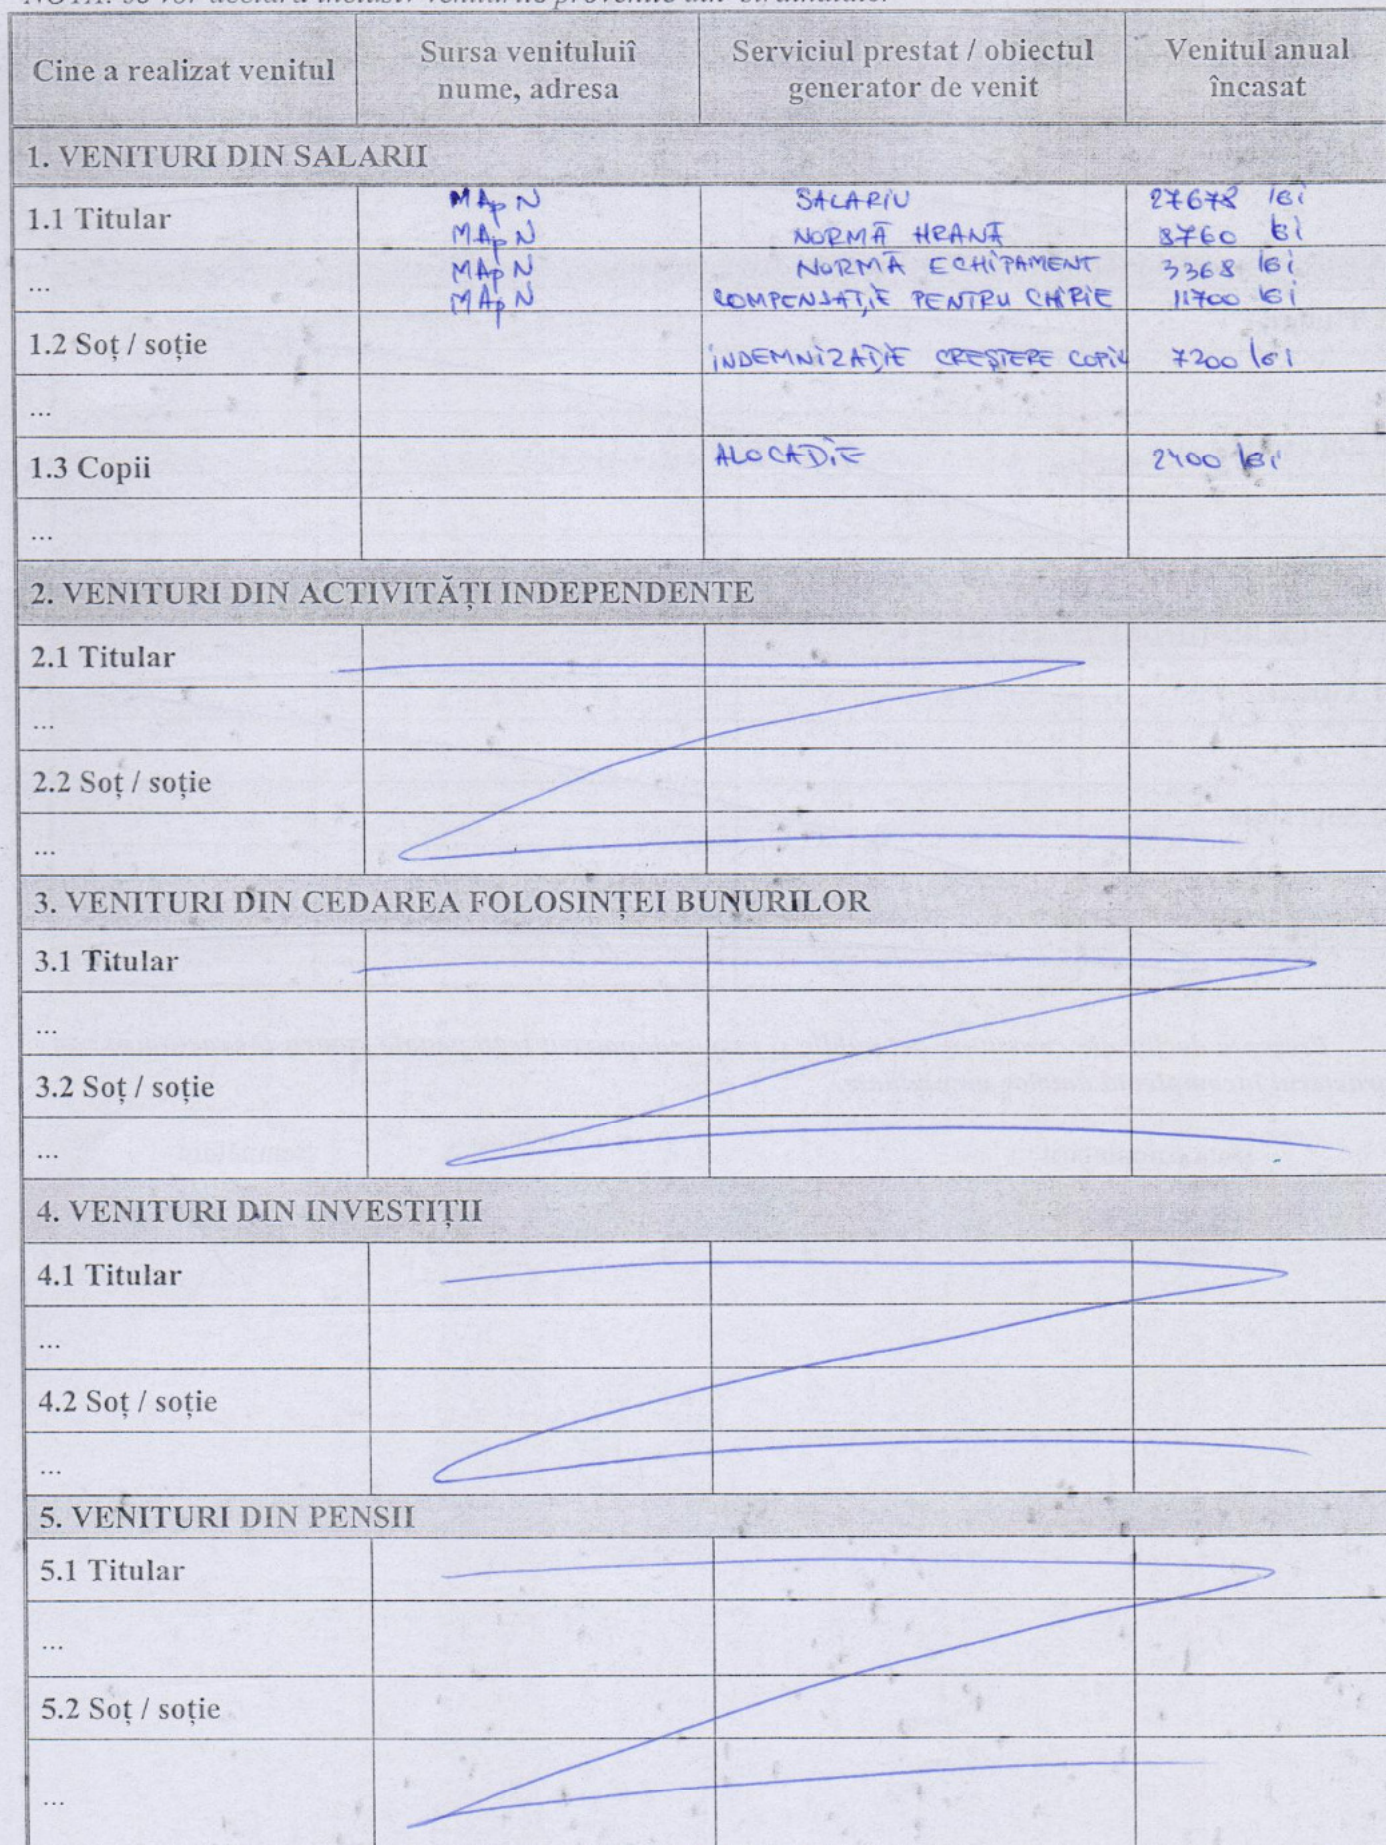 NOTĂ: Se vor declara inclusiv veniturile provenite din străinătate.
Cine a realizat venitul | Sursa venituluiî nume, adresa | Serviciul prestat / obiectul generator de venit | Venitul anual încasat
1. VENITURI DIN SALARII
1.1 Titular | MApN | SALARIU | 27678 lei
MApN | NORMĂ HRANĂ | 8760 lei
... | MApN | NORMĂ ECHIPAMENT | 3368 lei
MApN | COMPENSAȚIE PENTRU CHIRIE | 11700 lei
1.2 Soț / soție | INDEMNIZAȚIE CREȘTERE COPIL | 7200 lei
...
1.3 Copii | ALOCAȚIE | 2400 lei
...
2. VENITURI DIN ACTIVITĂȚI INDEPENDENTE
2.1 Titular
...
2.2 Soț / soție
...
3. VENITURI DIN CEDAREA FOLOSINȚEI BUNURILOR
3.1 Titular
...
3.2 Soț / soție
...
4. VENITURI DIN INVESTIȚII
4.1 Titular
...
4.2 Soț / soție
...
5. VENITURI DIN PENSII
5.1 Titular
...
5.2 Soț / soție
...